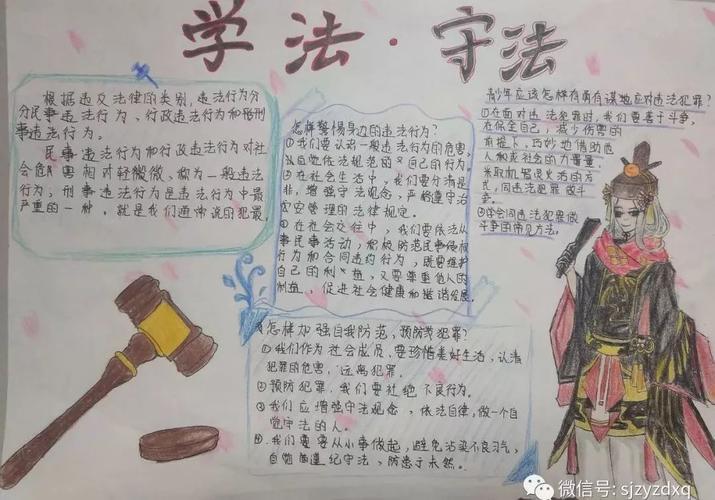 学法·守法
根据违反法律的类别,违法行为分
分民事违法行为、行政违法行为和刑
事违法行为。
民事违法行为和行政违法行为对社
会危害相对轻微微,称为一般违法
行为,刑事违法行为是违法行为中最
严重的一种,就是我们通常说的犯最
怎样警惕身边的违法行为?
①我们要认识一般违法行为的危害,
从自觉依法规范的自己的行为。
②在社会生活中,我们要分清是
非,增强守法观念,严格遵守治
安管理的法律规定。
③在社会交往中,我们要依法从
事民事活动,积极防范民事侵权
行为和合同违约行为,既要维护
自己的利益,又要尊重他人的
利益,促进社会健康和谐发展。
怎样加强自我防范,预防犯罪?
①我们作为社会成员,要珍惜美好生活,认清
犯罪的危害,远离犯罪。
②预防犯罪,我们要杜绝不良行为。
③我们应增强守法观念,依法自律,做一个自
觉守法的人。
④我们要要从小事做起,避免沾染不良习气,
自觉遵纪守法,防患于未然。
青少年应该怎样有勇有谋地应对违法犯罪?
①在面对违法犯罪时,我们要善于斗争,
在保全自己,减少伤害的
前提下,巧妙地借助他
人和或社会的力量,
采取机智灵活的方
式,同违法犯罪做斗
争。
②学会同违法犯罪做
斗争的常见方法。
微信号: sjzyzdxq